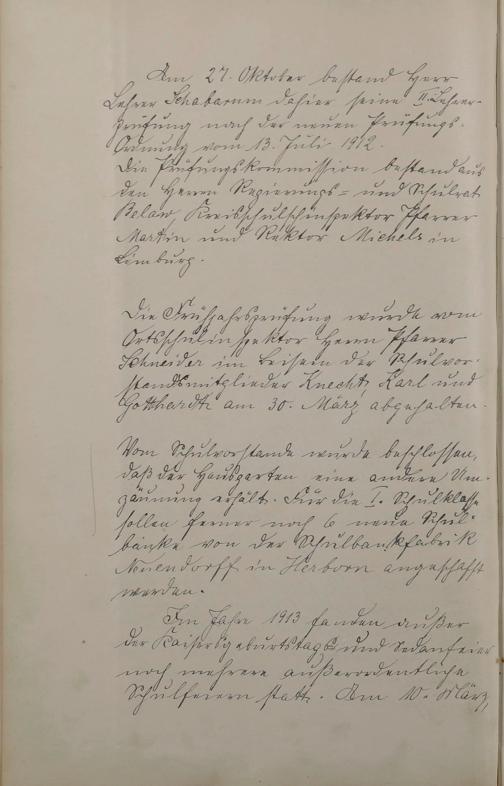 Am 27. Oktober bestand Herr
Lehrer Schabarum dahier seine II. Lehrer-
prüfung nach der neuen Prüfungs-
Ordnung vom 13. Juli 1912.
Die Prüfungskommission bestand aus
den Herrn Regierungs- und Schulrat
Below, Kreisschulinspektor Pfarrer
Martin und Rektor Michels in
Limburg.
Die Frühjahrsprüfung wurde vom
Ortsschulinspektor Herrn Pfarrer
Schneider im Beisein der Schulvor-
standsmitglieder Knecht, Karl und
Gotthardt am 30. März abgehalten.
Vom Schulvorstande wurde beschlossen,
daß der Hausgarten eine andere Um-
zäunung erhält. Für die I. Schulklasse
sollen ferner noch 6 neue Schul-
bänke von der Schulbankfabrik
Nuendorff in Herborn angeschafft
werden.
Im Jahre 1913 fanden außer
der Kaisersgeburtstags und Sedanfeier
noch mehrere außerordentliche
Schulfeiern statt. Am 10. März,